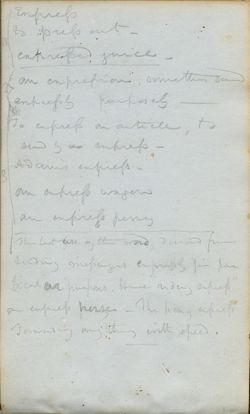 Express
to press out -
expressed juice -
an expression, something said
expressly purposely -
To express an article, to
send by an express -
Adams express -
an express wagon
an express pony
The last use of the word derived from
sending messengers expressly for par
ticular purposes. Hence riding express
an express horse - The pony express
Sounding anything with speed.